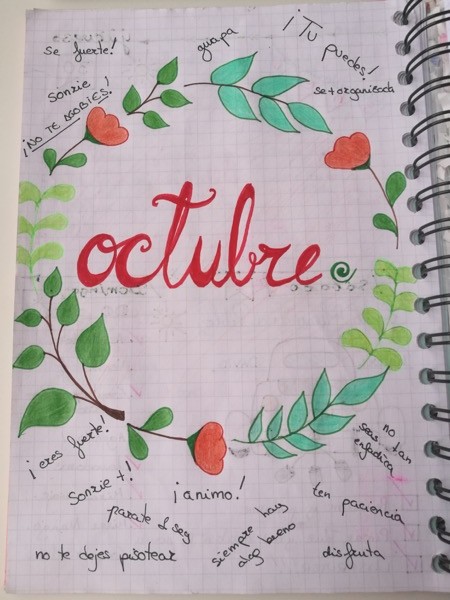 se fuerte!
guapa
¡Tu puedes!
sonrie!
se + organizada
¡NO TE AGOBIES!
octubre
¡eres fuerte!
no
seas tan
enfadica
Sonrie +!
¡animo!
ten paciencia
parate 1 seg
siempre hay
algo bueno
no te dejes pisotear
disfruta